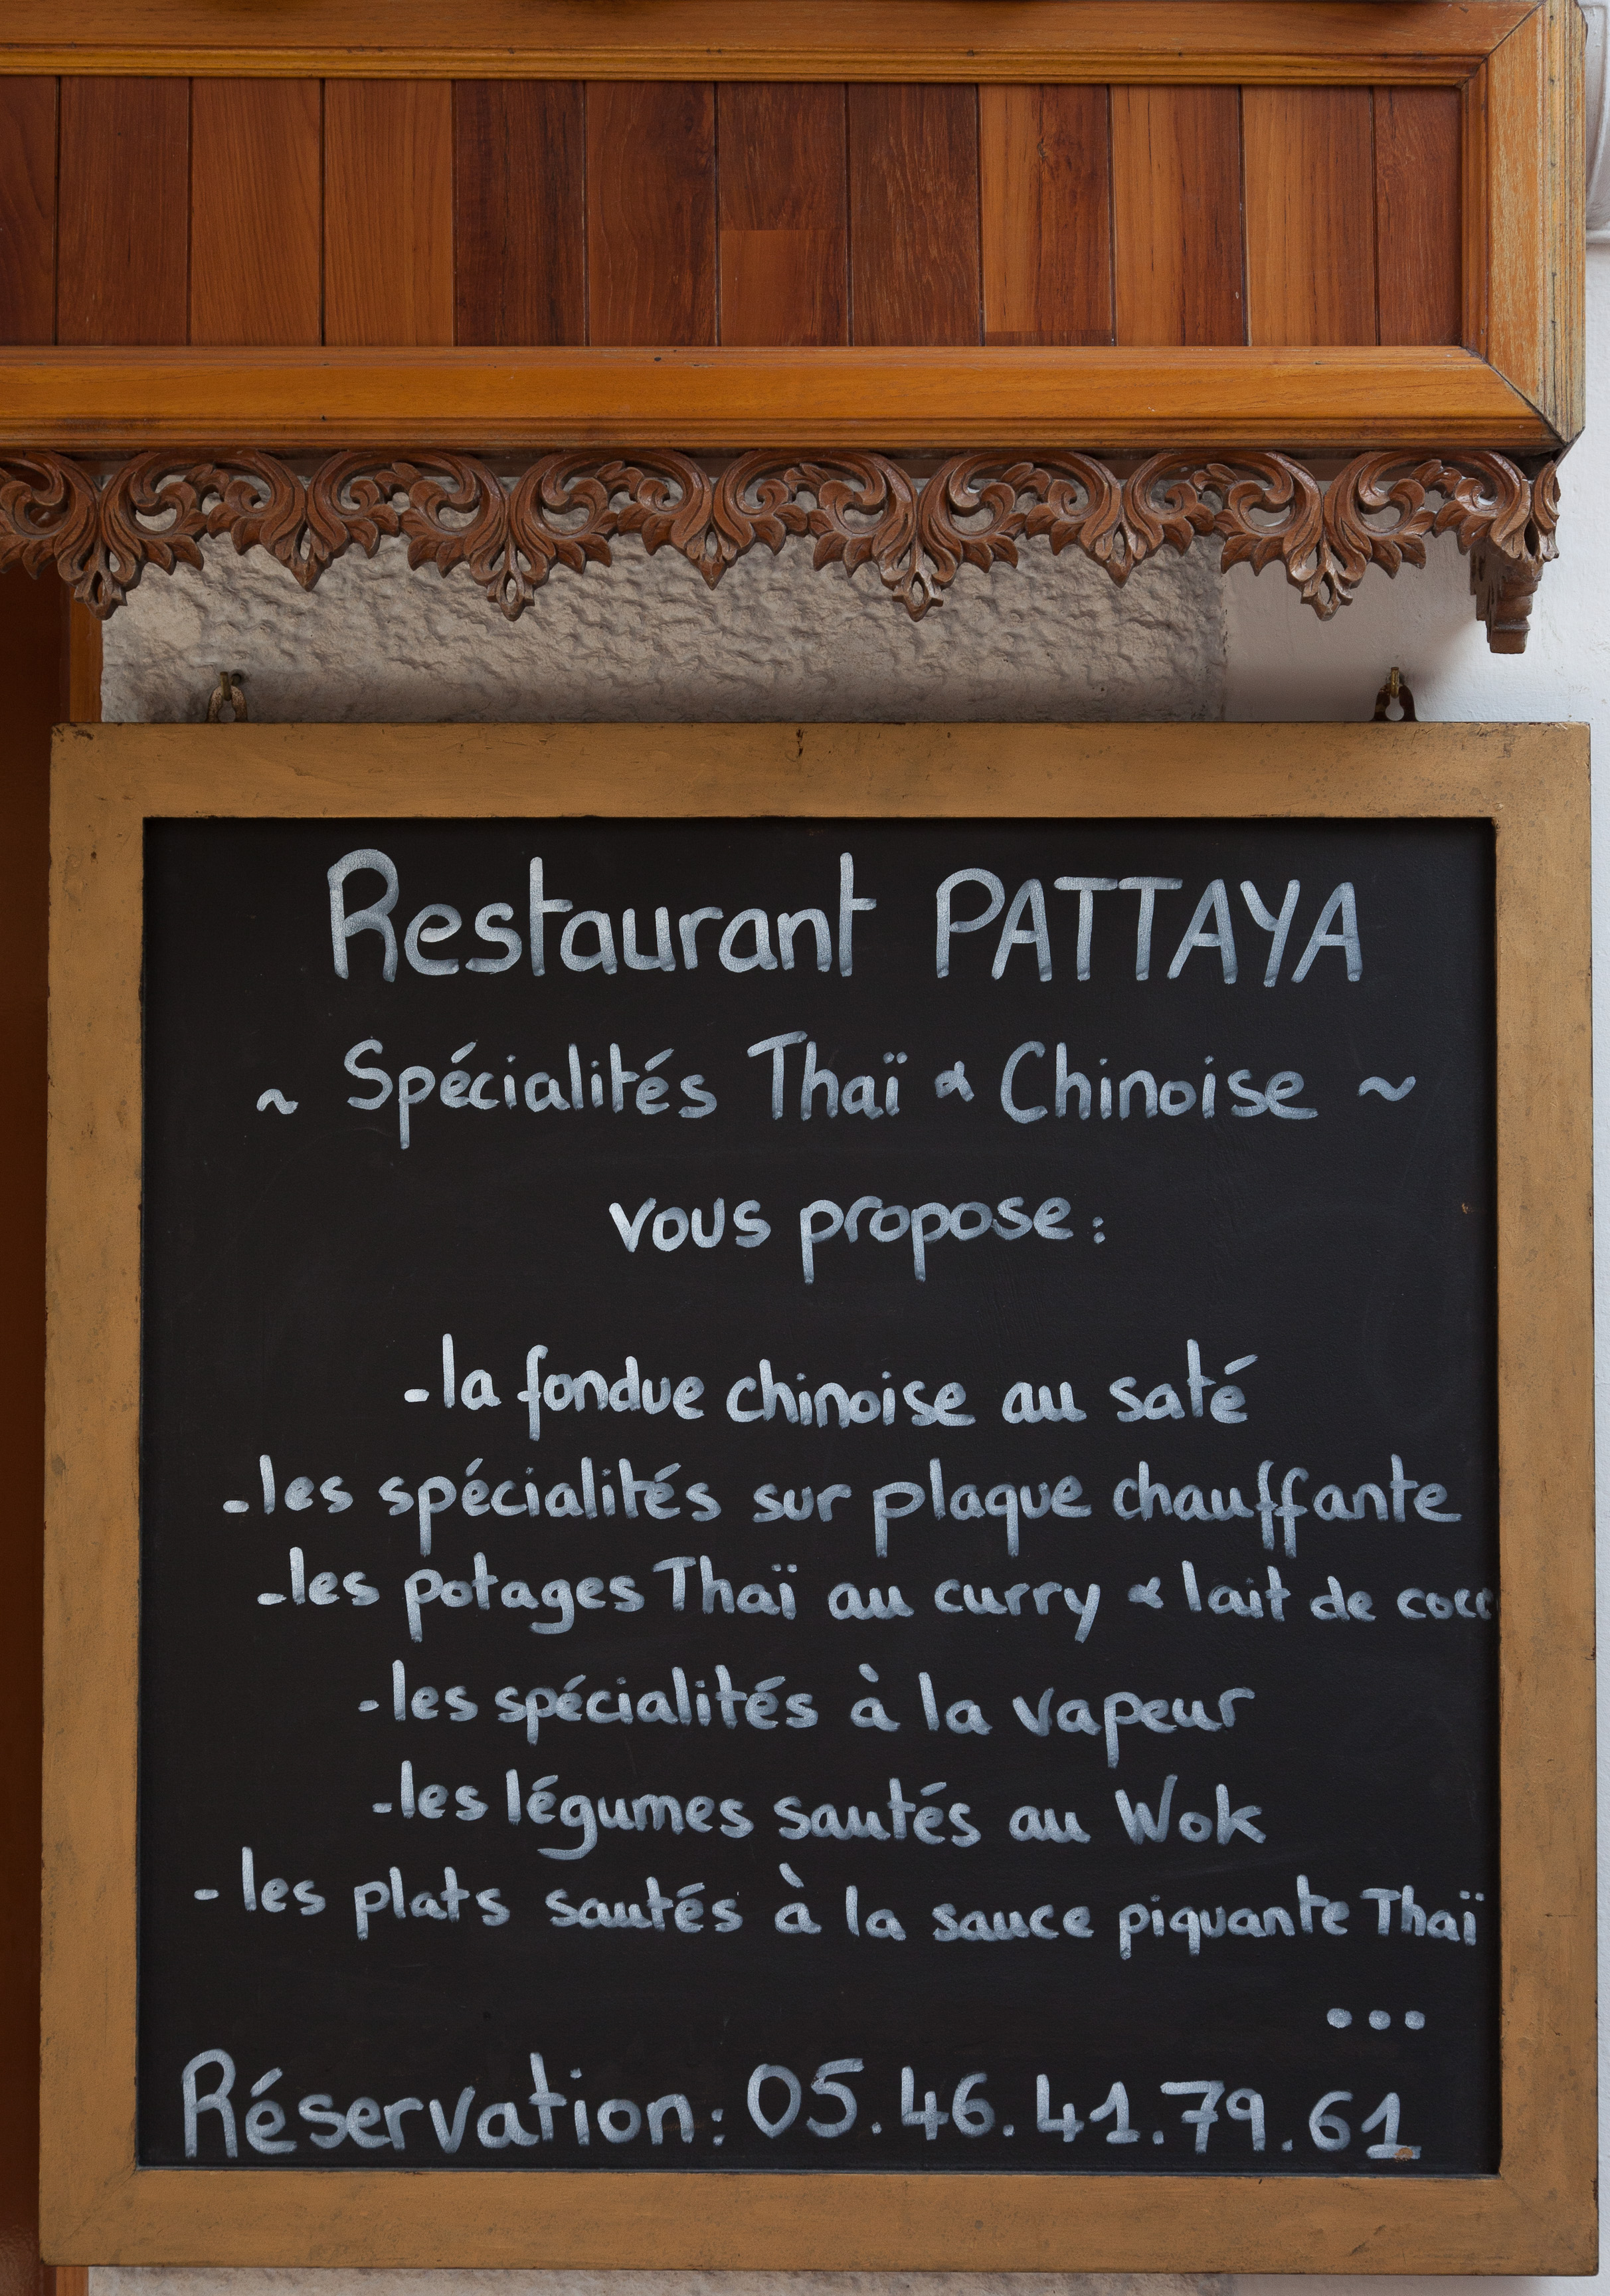 Restaurant PATTAYA
~ Spécialités Thaï & Chinoise ~
vous propose :
-la fondue chinoise au saté
-les spécialités sur plaque chauffante
-les potages Thaï au curry & lait de coco
-les spécialités à la vapeur
-les légumes sautés au Wok
- les plats sautés à la sauce piquante Thaï
...
Réservation: 05.46.41.79.61